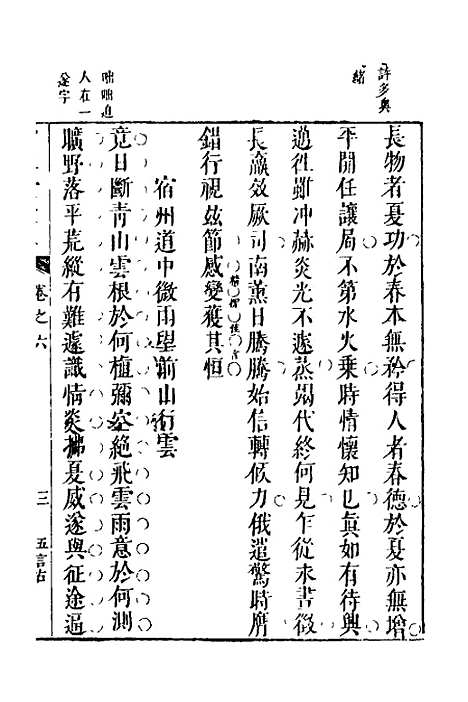 許多奧
緒
長物者夏功於春本無矜得人者春德於夏亦無增
平開任讓局不第水火乘時情懷知㠯真如有待與
過徃雖冲赫炎光不遽蒸代終何見乍從來書徵
長嬴效厥司南薰日騰騰始信轉倾力俄遣驚時膺
錯行視玆節感變獲其恒
宿州道中微雨望前山行雲
竟日斷青山雲根於何植彌空絕飛雲雨意於何測
曠野落平荒縱有難遽識情炎拂夏威遂與征途逼
咄咄進
人在一
逶字
卷之六
三
五言古